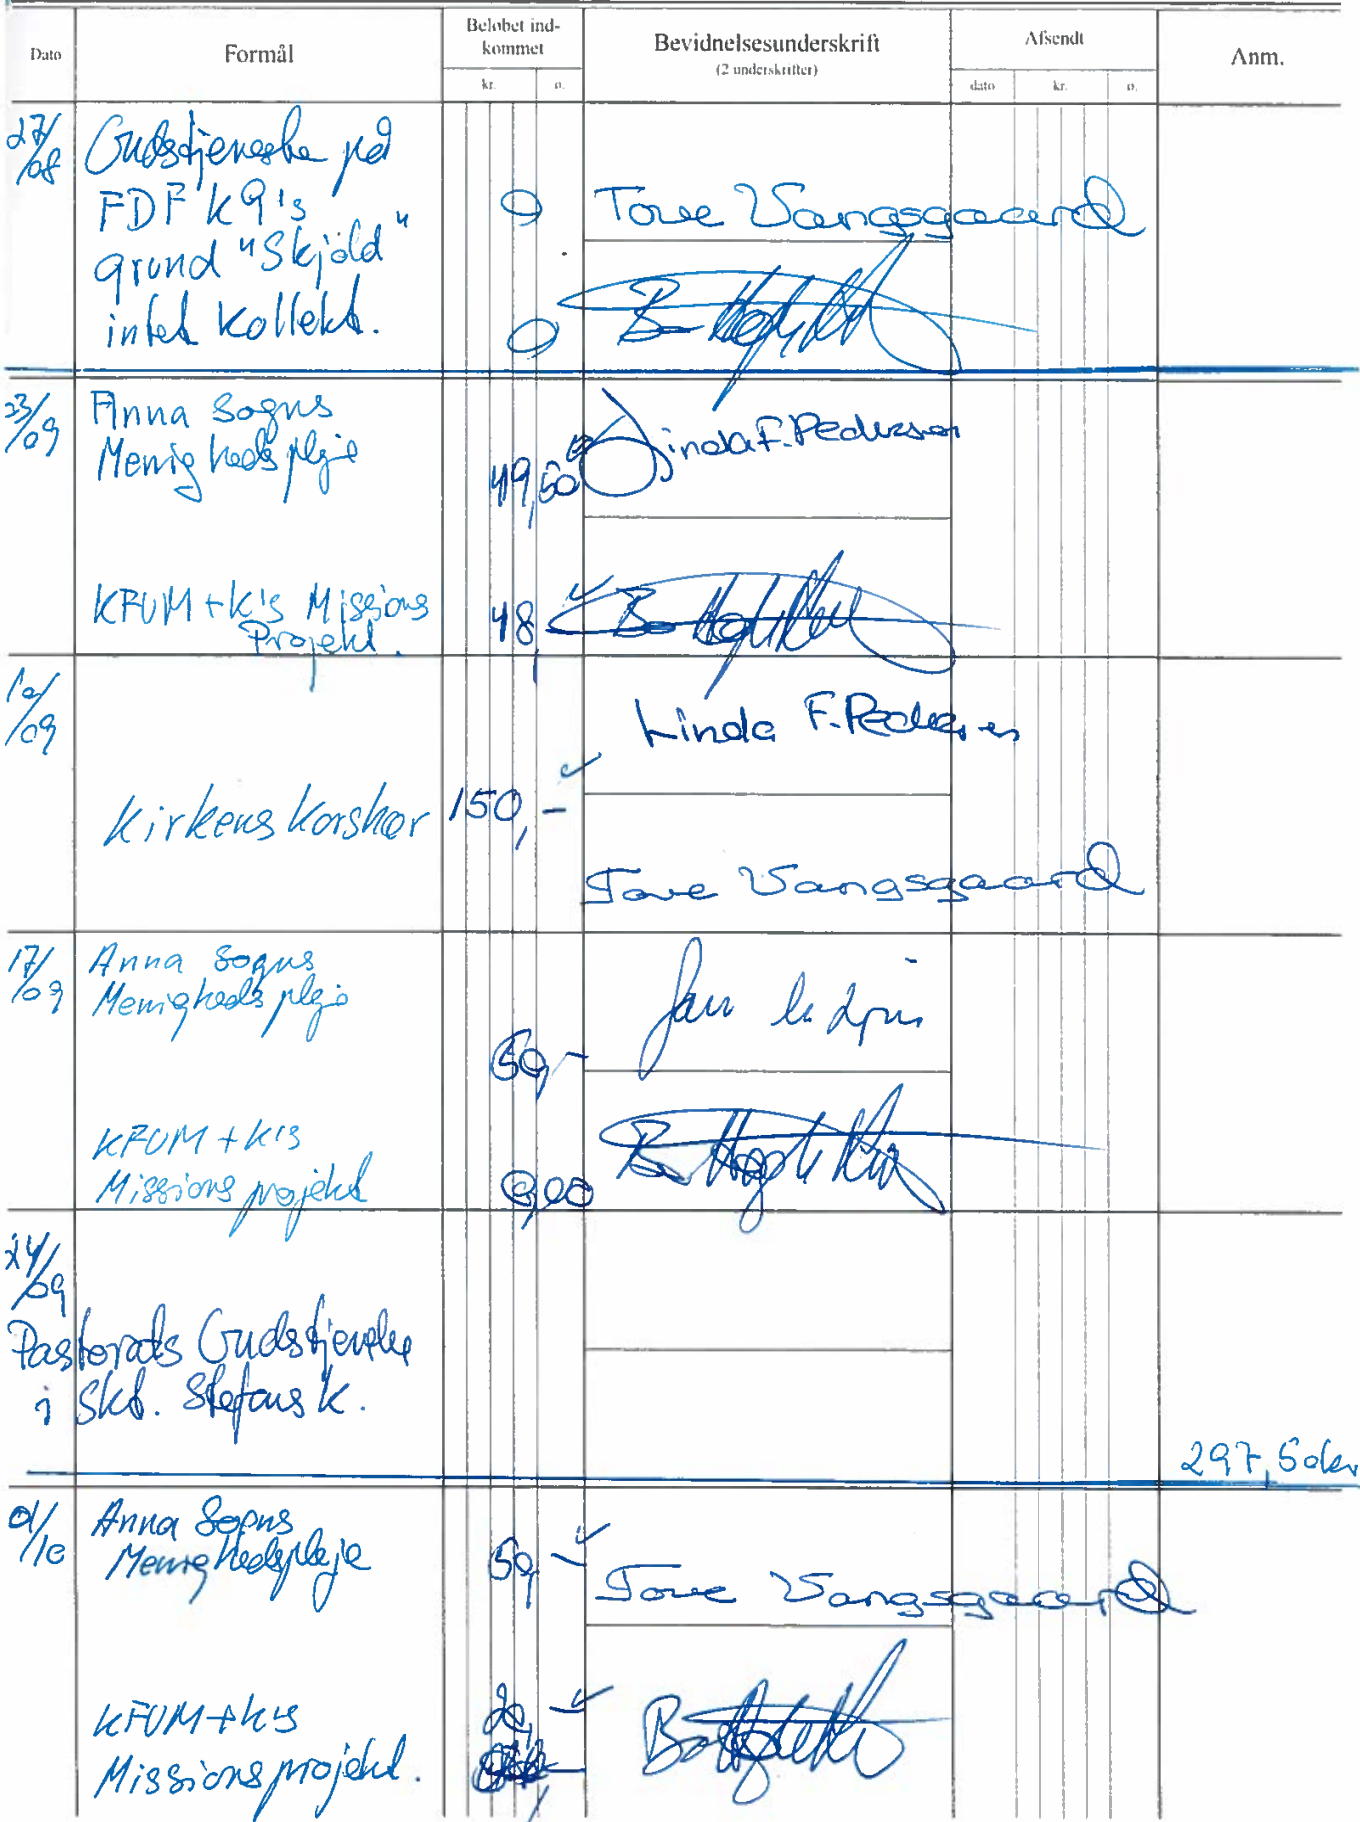 Dato
Formål
Beløbet ind-
kommet
kr.
ø.
Bevidnelsesunderskrift
(2 underskrifter)
Afsendt
dato
kr.
ø.
Anm.
27/08
Gudstjeneste på
FDF K9's
grund "Skjöld"
intet kollekt.
0
0
Tove Vangsgaard
/09
Anna Sogns
Menighedspleje
49,50
Linda F. Pedersen
KFUM+K's Missions
Projekt.
48,
10/09
Kirkens Korshær
150,-
Linda F. Pedersen
Tove Vangsgaard
17/09
Anna Sogns
Menighedspleje
50,-
KFUM+K's
Missionsprojekt
0,00
24/09
Pastorats Gudstjeneste
i Skt. Stefans K.
297,50kr
01/10
Anna Sogns
Menighedspleje
50,-
Tove Vangsgaard
KFUM+K's
Missionsprojekt.
20,-